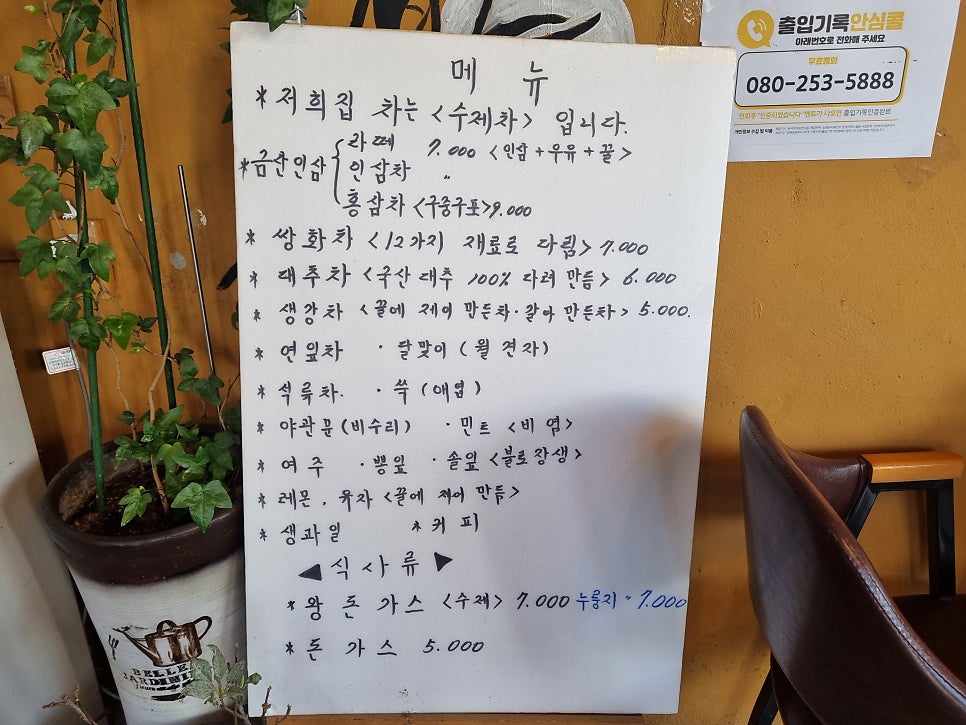 메 뉴
* 저희집 차는 <수제차> 입니다.
* 금산인삼 { 라떼 7.000 <인삼+우유+꿀>
인삼차 〃
홍삼차 <구증구포> 9.000
* 쌍화차 <12가지 재료로 다림> 7.000
* 대추차 <국산 대추 100% 다려 만듬> 6.000
* 생강차 <꿀에 제어 만든차·갈아 만든차> 5.000.
* 연잎차 · 달맞이 (월견자)
* 석류차. · 쑥 (애엽)
* 야관문 (비수리) · 민트 <비염>
* 여주 · 뽕잎 · 솔잎 <불로장생>
* 레몬, 유자 <꿀에 제어 만듬>
* 생과일 * 커피
◀ 식사류 ▶
* 왕 돈 가스 <수제> 7.000 누룽지 〃 7.000
* 돈 가스 5.000
출입기록안심콜
아래번호로 전화해 주세요
무료통화
080-253-5888
전화후 "인증되었습니다" 멘트가 나오면 출입기록인증완료
개인정보 수집 및 이용
BELLE
JARDINI